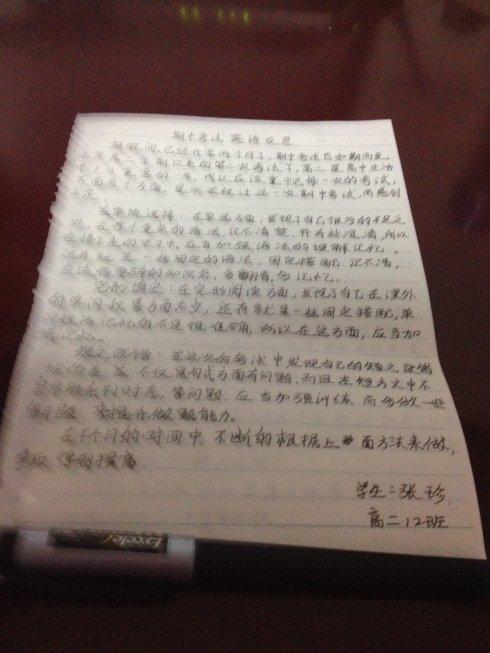 期中考试 英语反思
转眼间,已经开学两个月了,期中考试也如期而至。
这是高二学期以来的第二次考试了,高二是高中生活
中最重要的一年,所以应该重视每一次的考试,
不足。
单项选择:在单选方面,发现了自己很多的不足之
处,在学个重要的语法,记不清楚,所以
在接下来的学习中,应当加强语法的理解记忆。
还有就是一些固定的语法,固定搭配记不清,
应该把零碎的知识点,多翻看,多记忆。
完形填空:在完形阅读方面,发现了自己在课外
的单词数量方面不少,还有就是一些固定搭配,单
词短语记忆的不是很准确,所以在这方面,应当加
强记忆。
短文改错:在这次的考试中发现自己的短文改错
不仅是句式方面有问题,而且在短文中不
容易联系到时态,等问题,应当加强训练,而多做一些
题,来提升做题能力。
在下个月的时间中,不断的根据上面方法来做,
争取得到提高.
学生:张珍
高二12班